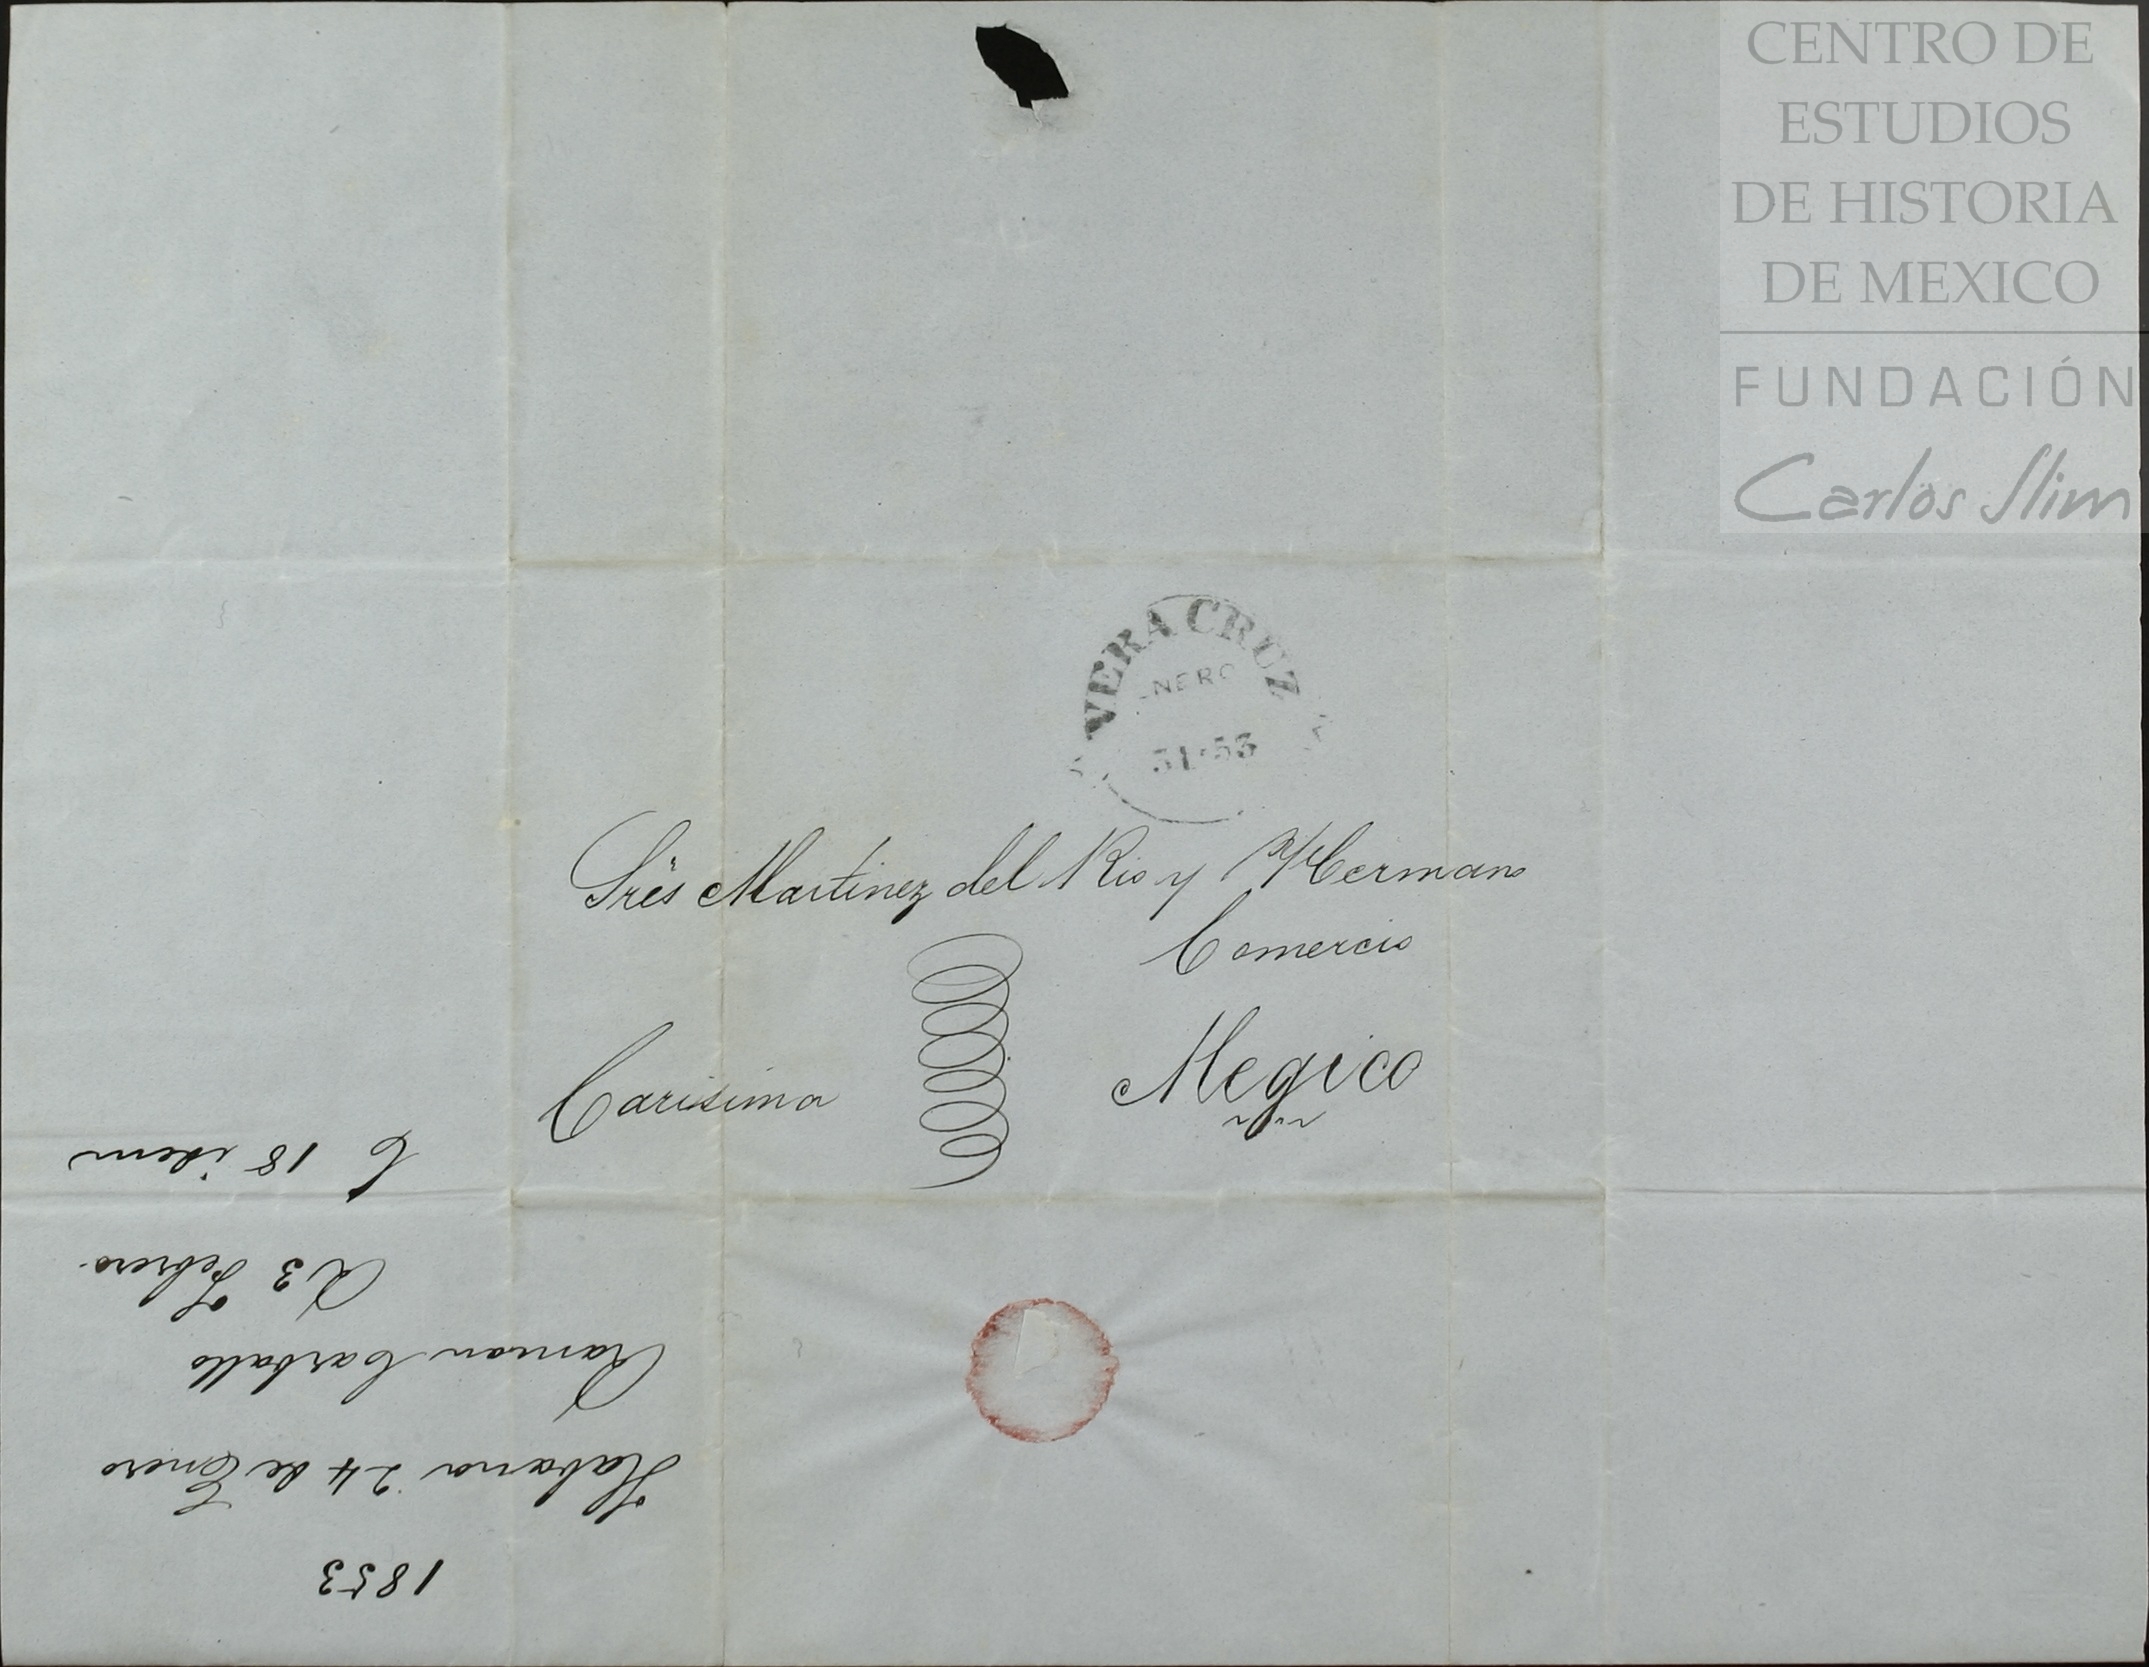 CENTRO DE
ESTUDIOS
DE HISTORIA
DE MEXICO
FUNDACIÓN
Carlos Slim
VERA CRUZ
ENERO
31·53
Sres Martinez del Rio y Hermano
Comercio
Carisima
Megico
1853
Habana 24 de Enero
Ramon Carballo
R 3 Febrero
C 18 idem